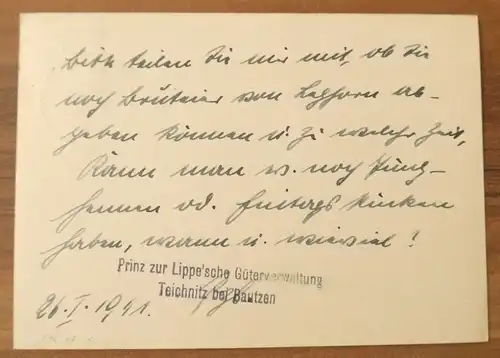 Bitte teilen Sie mir mit, ob Sie
noch Bruteier von Leghorn ab-
geben können u. zu welcher Zeit,
Kann man w. noch Jung-
hennen od. Eintagskücken
haben, wann u. wieviel?
Prinz zur Lippe'sche Güterverwaltung
Teichnitz bei Bautzen
26.I.1941.